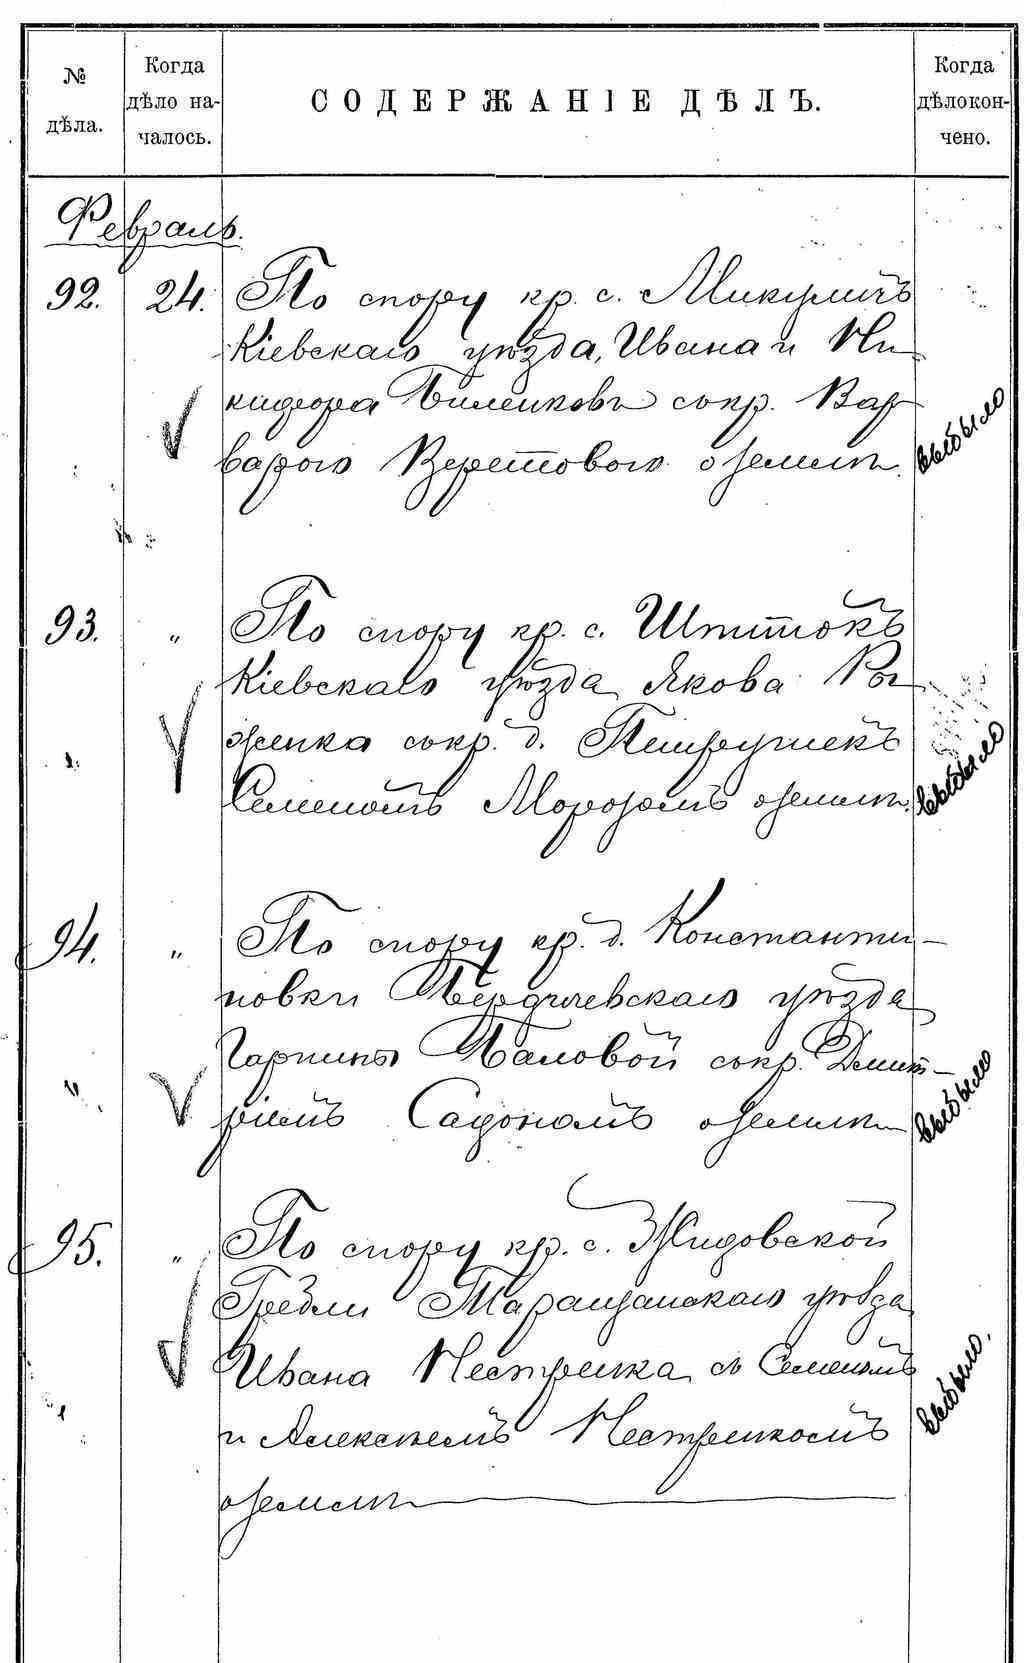 № дѣла. Когда дѣло на- чалось. СОДЕРЖАНІЕ ДѢЛЪ. Когда дѣло кон- чено.
Февраль.
92. 24. По спору кр. с. Микуличъ
Кіевскаго уѣзда, Ивана и Ни-
кифора Биленковъ съ кр. Вар-
варою Веретовою о землѣ. выбыло
93. „ По спору кр. с.
Кіевскаго уѣзда Якова
женка съ кр. д.
Семеномъ Морозомъ о землѣ. выбыло
94. „ По спору кр. д. Константи-
новки Бердичевскаго уѣзда
Гарпины Баловой съ кр. Дмит-
ріемъ о землѣ выбыло
95. „ По спору кр. с. Жидовской
Гребли Таращанскаго уѣзда
Ивана Нестренка съ Семеномъ
и Алексѣемъ Нестренкомъ выбыло.
о землѣ